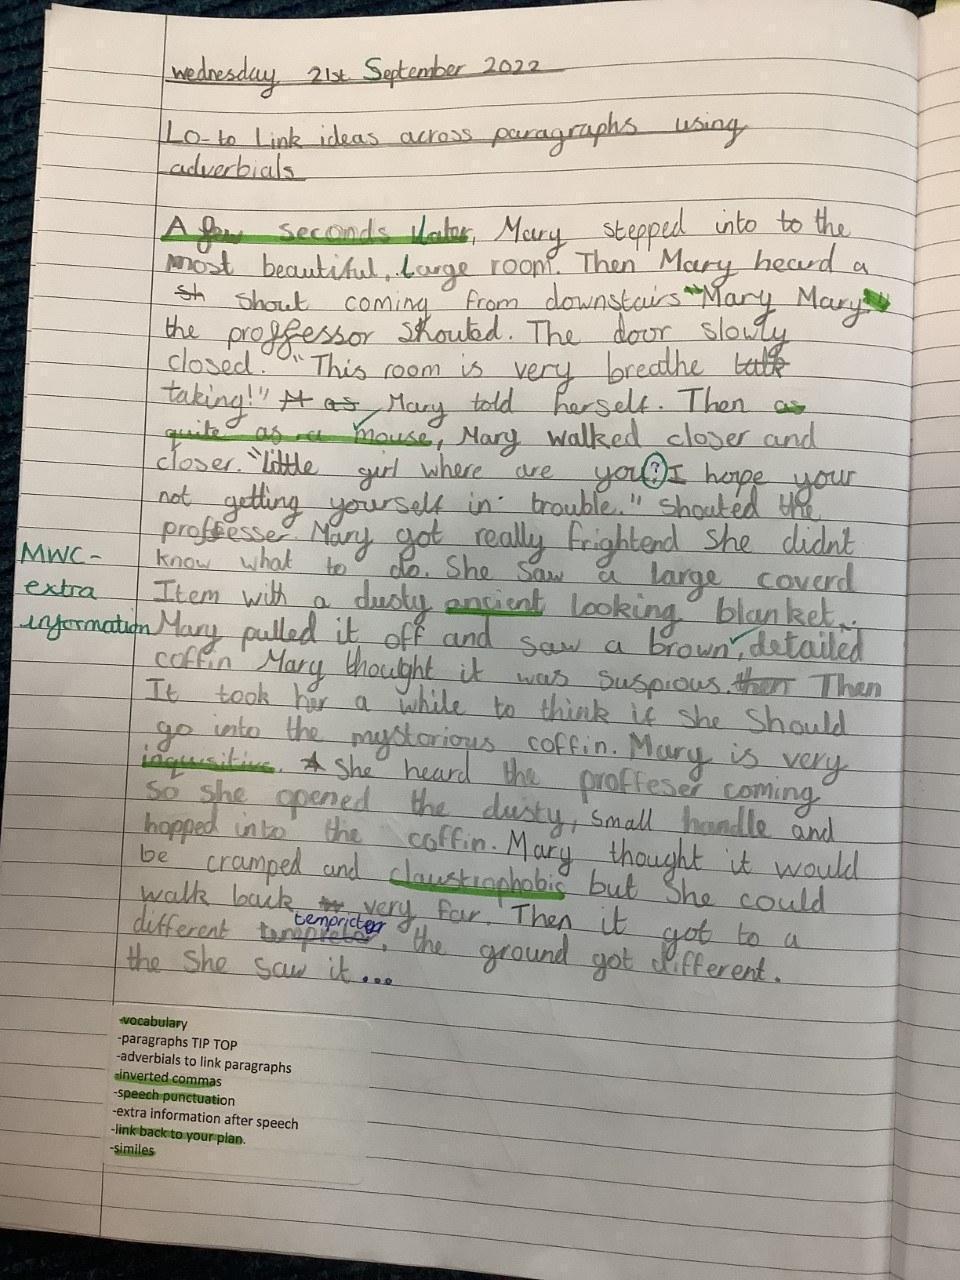 wednesday 21st September 2022
LO- to Link ideas across paragraphs using
adverbials
A few seconds later, Mary stepped into to the
most beautiful, large room. Then Mary heard a
sh shout coming from downstairs "Mary Mary"
the proffessor shouted. The door slowly
closed. "This room is very breathe talk
taking!" It as Mary told herself. Then as
quite as a mouse, Mary walked closer and
closer. "little girl where are you? I hope your
not getting yourself in trouble." Shouted the
proffesser. Mary got really frightend She didnt
know what to do. She saw a large coverd
Item with a dusty ancient looking blanket..
MWC-
extra
information
Mary pulled it off and saw a brown, detailed
coffin Mary thought it was suspious. then Then
It took her a while to think if she should
go into the mystorious coffin. Mary is very
inqusitive. A She heard the proffeser coming
so she opened the dusty, small handle and
hopped into the coffin. Mary thought it would
be cramped and claustrophobic but She could
walk back very far. Then it got to a
different tempricter, the ground got different.
the She saw it...
-vocabulary
-paragraphs TIP TOP
-adverbials to link paragraphs
-inverted commas
-speech punctuation
-extra information after speech
-link back to your plan.
-similes